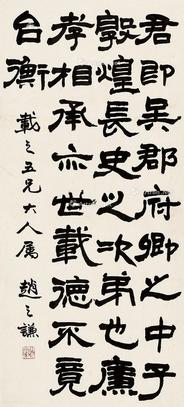 君即吴郡府卿之中子
敦煌長史之次弟也廉
孝相承亦世載德不竟
台衡
載之五兄大人属
趙之謙